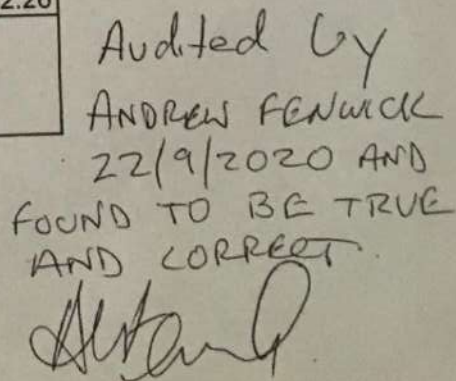 2.20
Audited by
ANDREW FENWICK
22/9/2020 AND
FOUND TO BE TRUE
AND CORRECT.